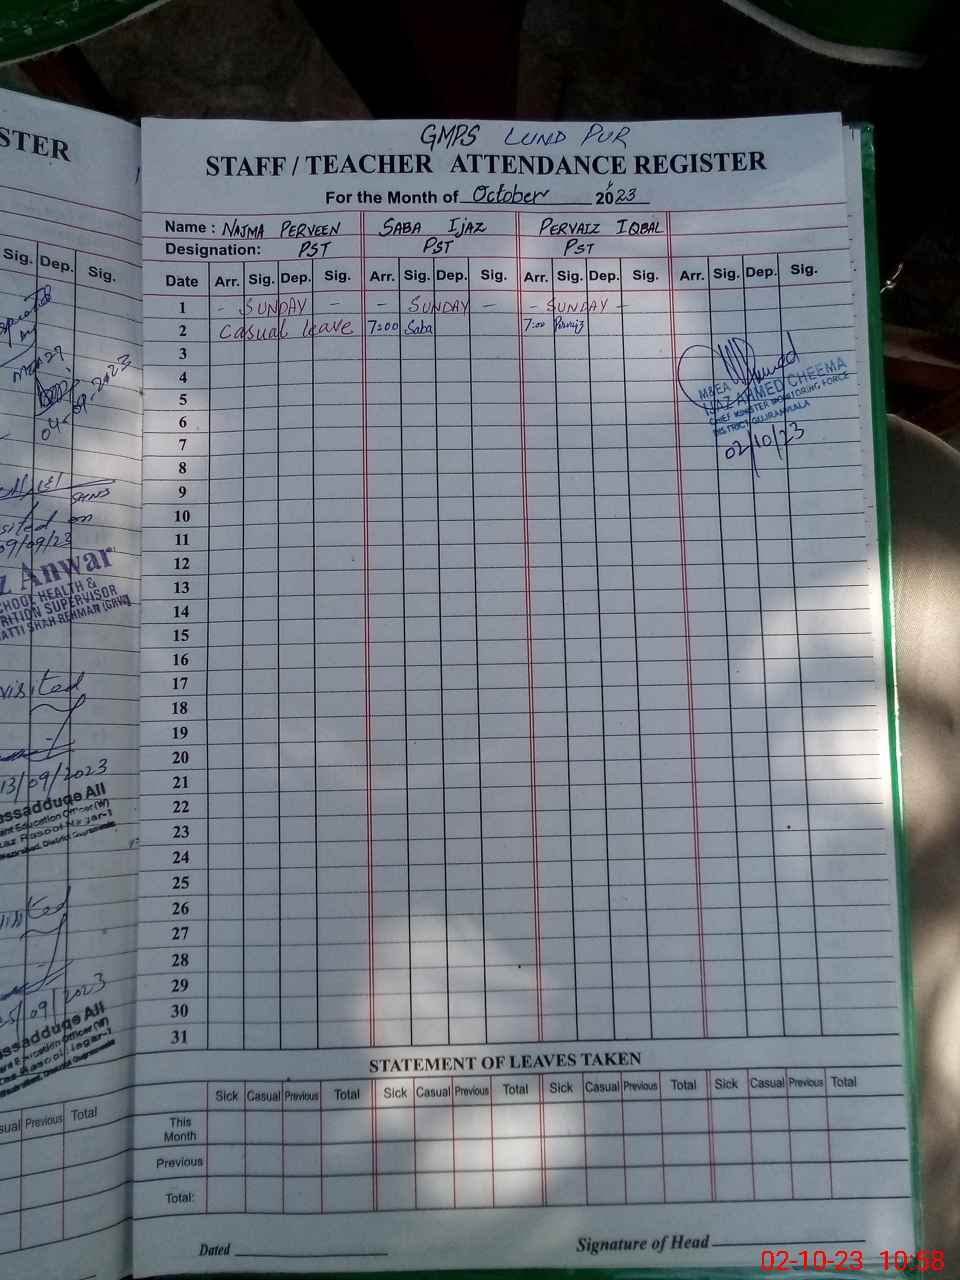 STER
Sig. Dep. Sig.
04-09-2023
09/09/23
z Anwar
CHOOL HEALTH &
RITION SUPERVISOR
ATTI SHAH REHMAN (GRW)
visited
13/09/2023
assadduqe Ali
visited
09/2023
assadduqe Ali
sual Previous Total
GMPS LUND PUR
STAFF / TEACHER ATTENDANCE REGISTER
For the Month of October 2023
Name : NAJMA PERVEEN SABA IJAZ PERVAIZ IQBAL
Designation: PST PST PST
Date Arr. Sig. Dep. Sig. Arr. Sig. Dep. Sig. Arr. Sig. Dep. Sig. Arr. Sig. Dep. Sig.
1 - SUNDAY - - SUNDAY - - SUNDAY -
2 Casual leave 7:00 Saba 7:00 Pervaiz
3
4
5
6
7
8
9
10
11
12
13
14
15
16
17
18
19
20
21
22
23
24
25
26
27
28
29
30
31
M&EA
AHMED CHEEMA
CHIEF MINISTER MONITORING FORCE
DISTRICT GUJRANWALA
02/10/23
STATEMENT OF LEAVES TAKEN
Sick Casual Previous Total Sick Casual Previous Total Sick Casual Previous Total Sick Casual Previous Total
This
Month
Previous
Total:
Dated Signature of Head
02-10-23 10:58